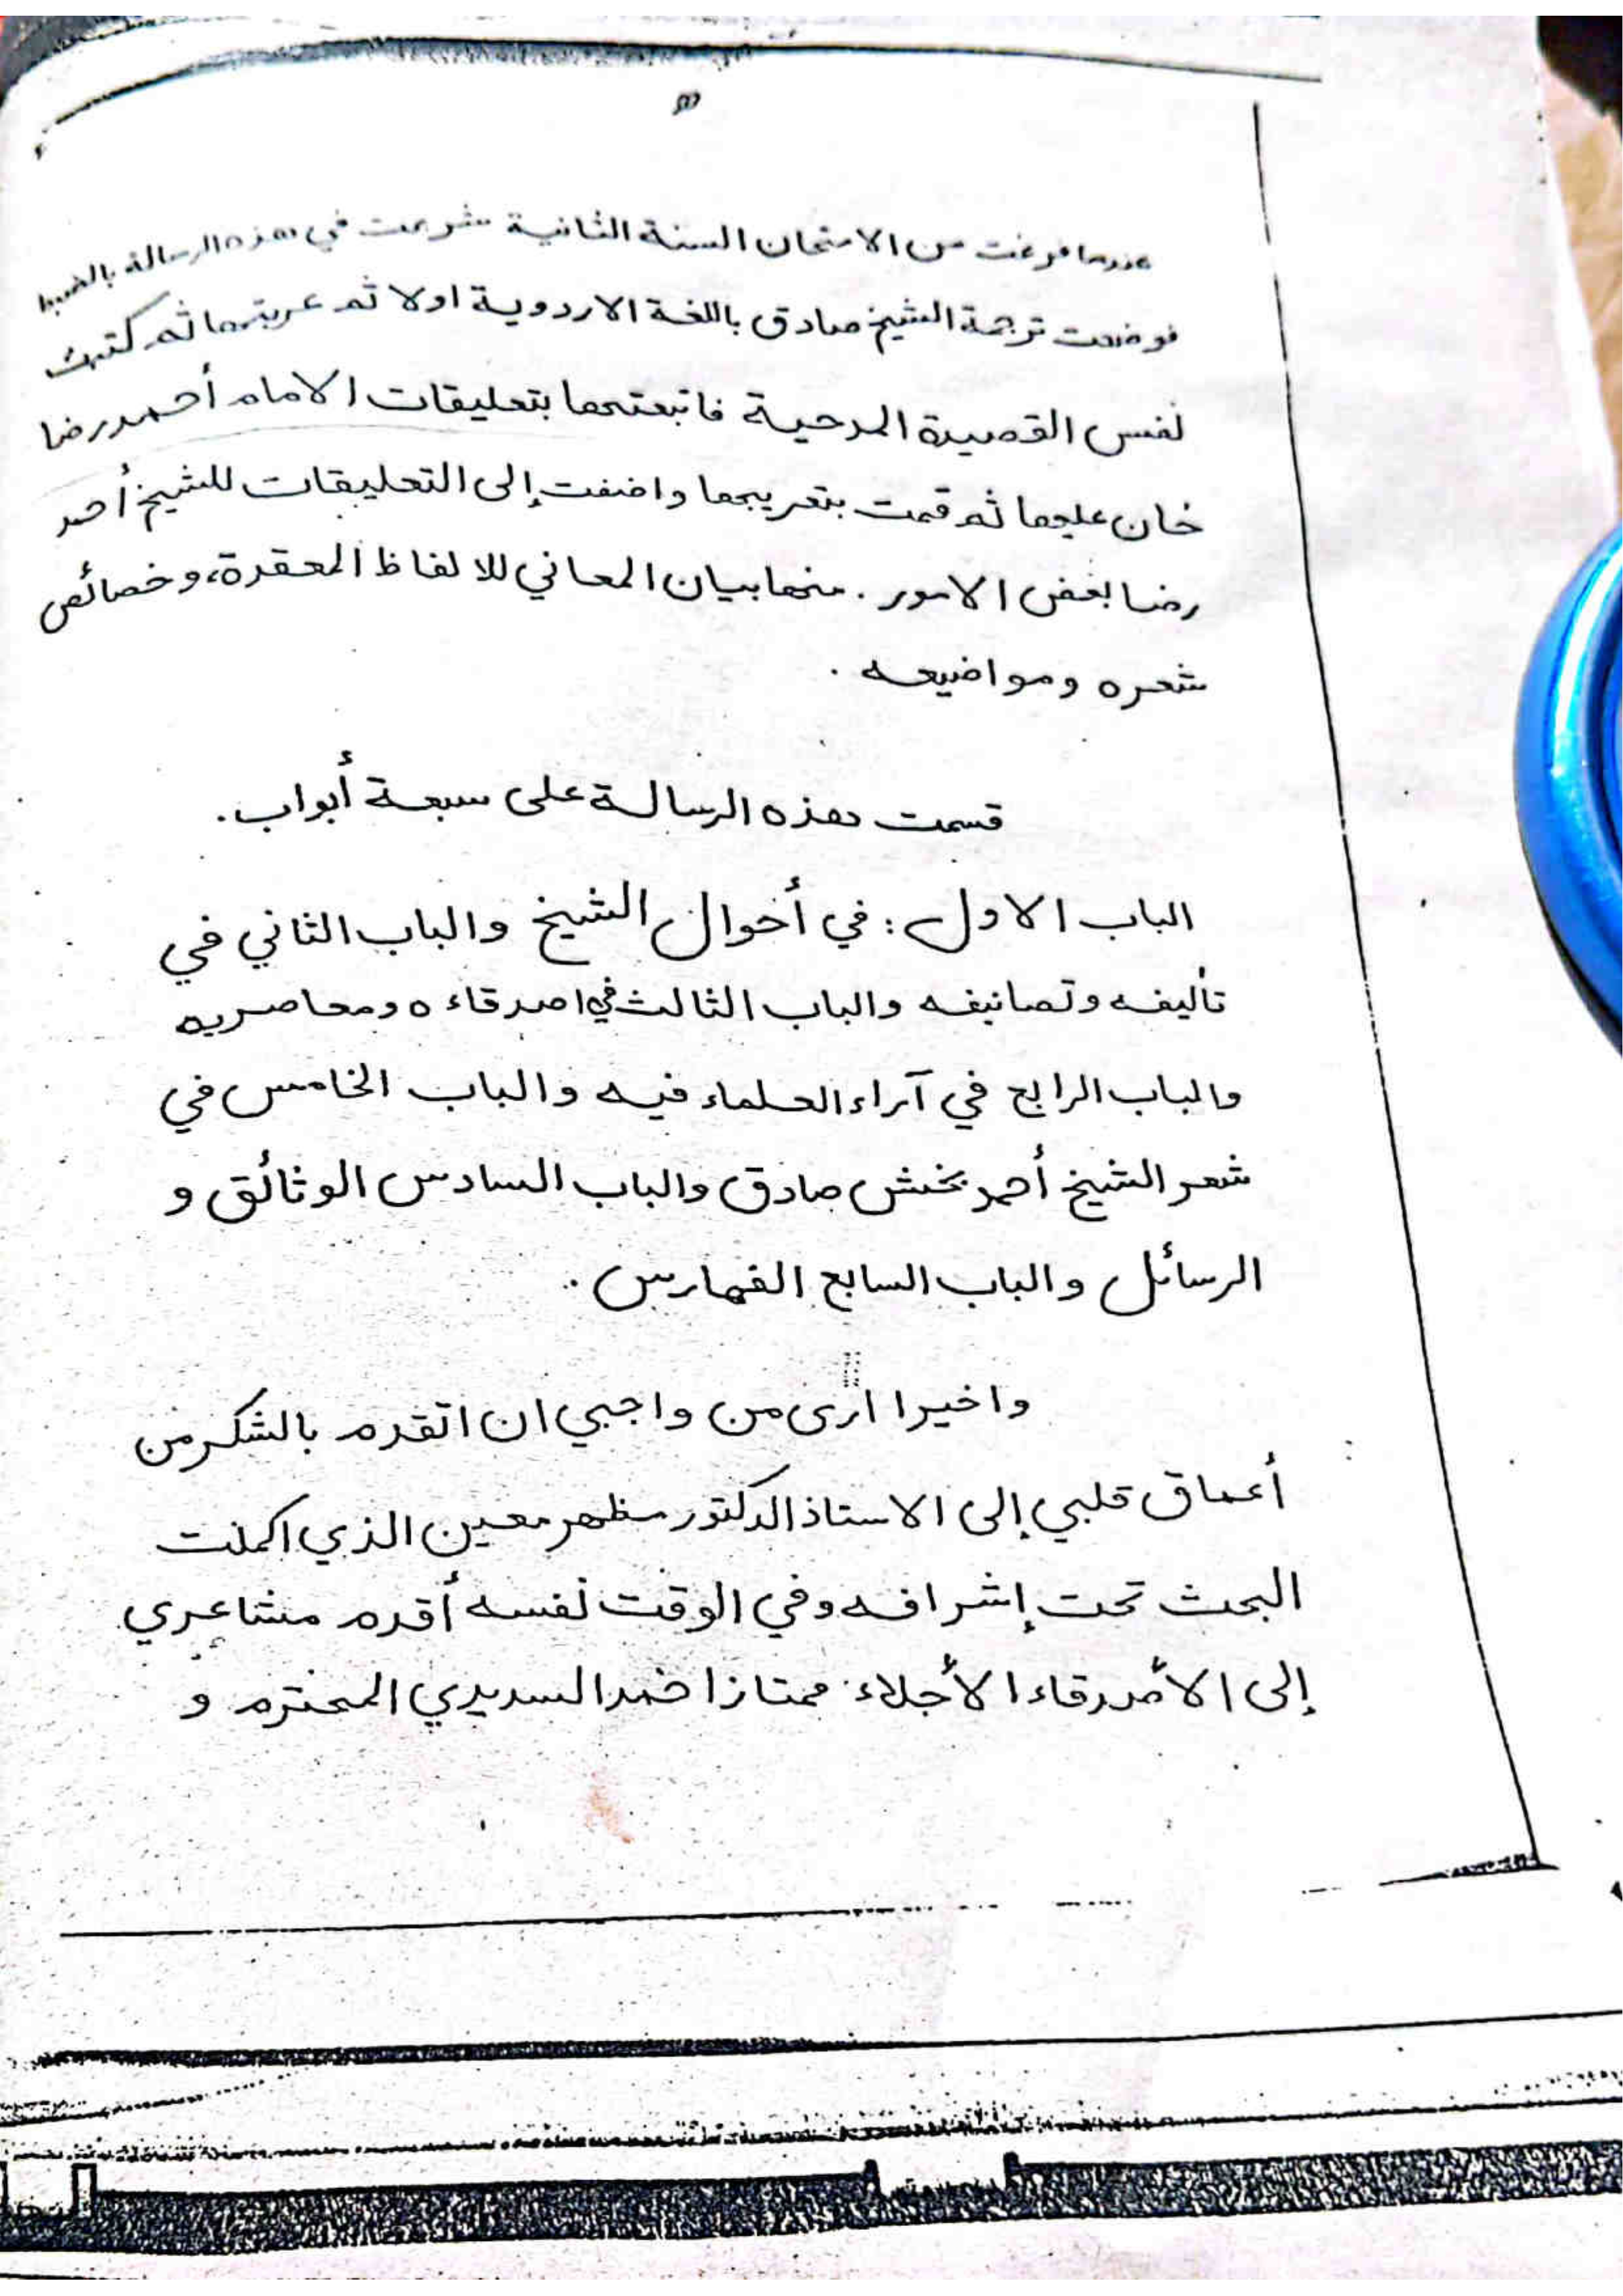 عندما فرغت من الامتحان السنة الثانية شرعت في هذه الرسالة بالضبط
فوضعت ترجمة الشيخ صادق باللغة الاردوية اولا ثم عربتها ثم كتبت
نفس القصيدة المدحية فاتبعتها بتعليقات الامام أحمد رضا
خان عليها ثم قمت بتعريبها واضفت إلى التعليقات للشيخ أحمد
رضا بعض الامور . منها بيان المعاني للالفاظ المعقدة، وخصائص
شعره ومواضيعه .
قسمت هذه الرسالة على سبعة أبواب.
الباب الاول : في أحوال الشيخ والباب الثاني في
تأليفه وتصانيفه والباب الثالث في اصدقاءه ومعاصريه
والباب الرابع في آراء العلماء فيه والباب الخامس في
شعر الشيخ أحمد بخش صادق والباب السادس الوثائق و
الرسائل والباب السابع الفهارس .
واخيرا أرى من واجبي ان اتقدم بالشكر من
أعماق قلبي إلى الاستاذ الدكتور مظهر معين الذي اكملت
البحث تحت إشرافه وفي الوقت نفسه أقدم مشاعري
إلى الأصدقاء الأجلاء ممتاز احمد السديدي المحترم و